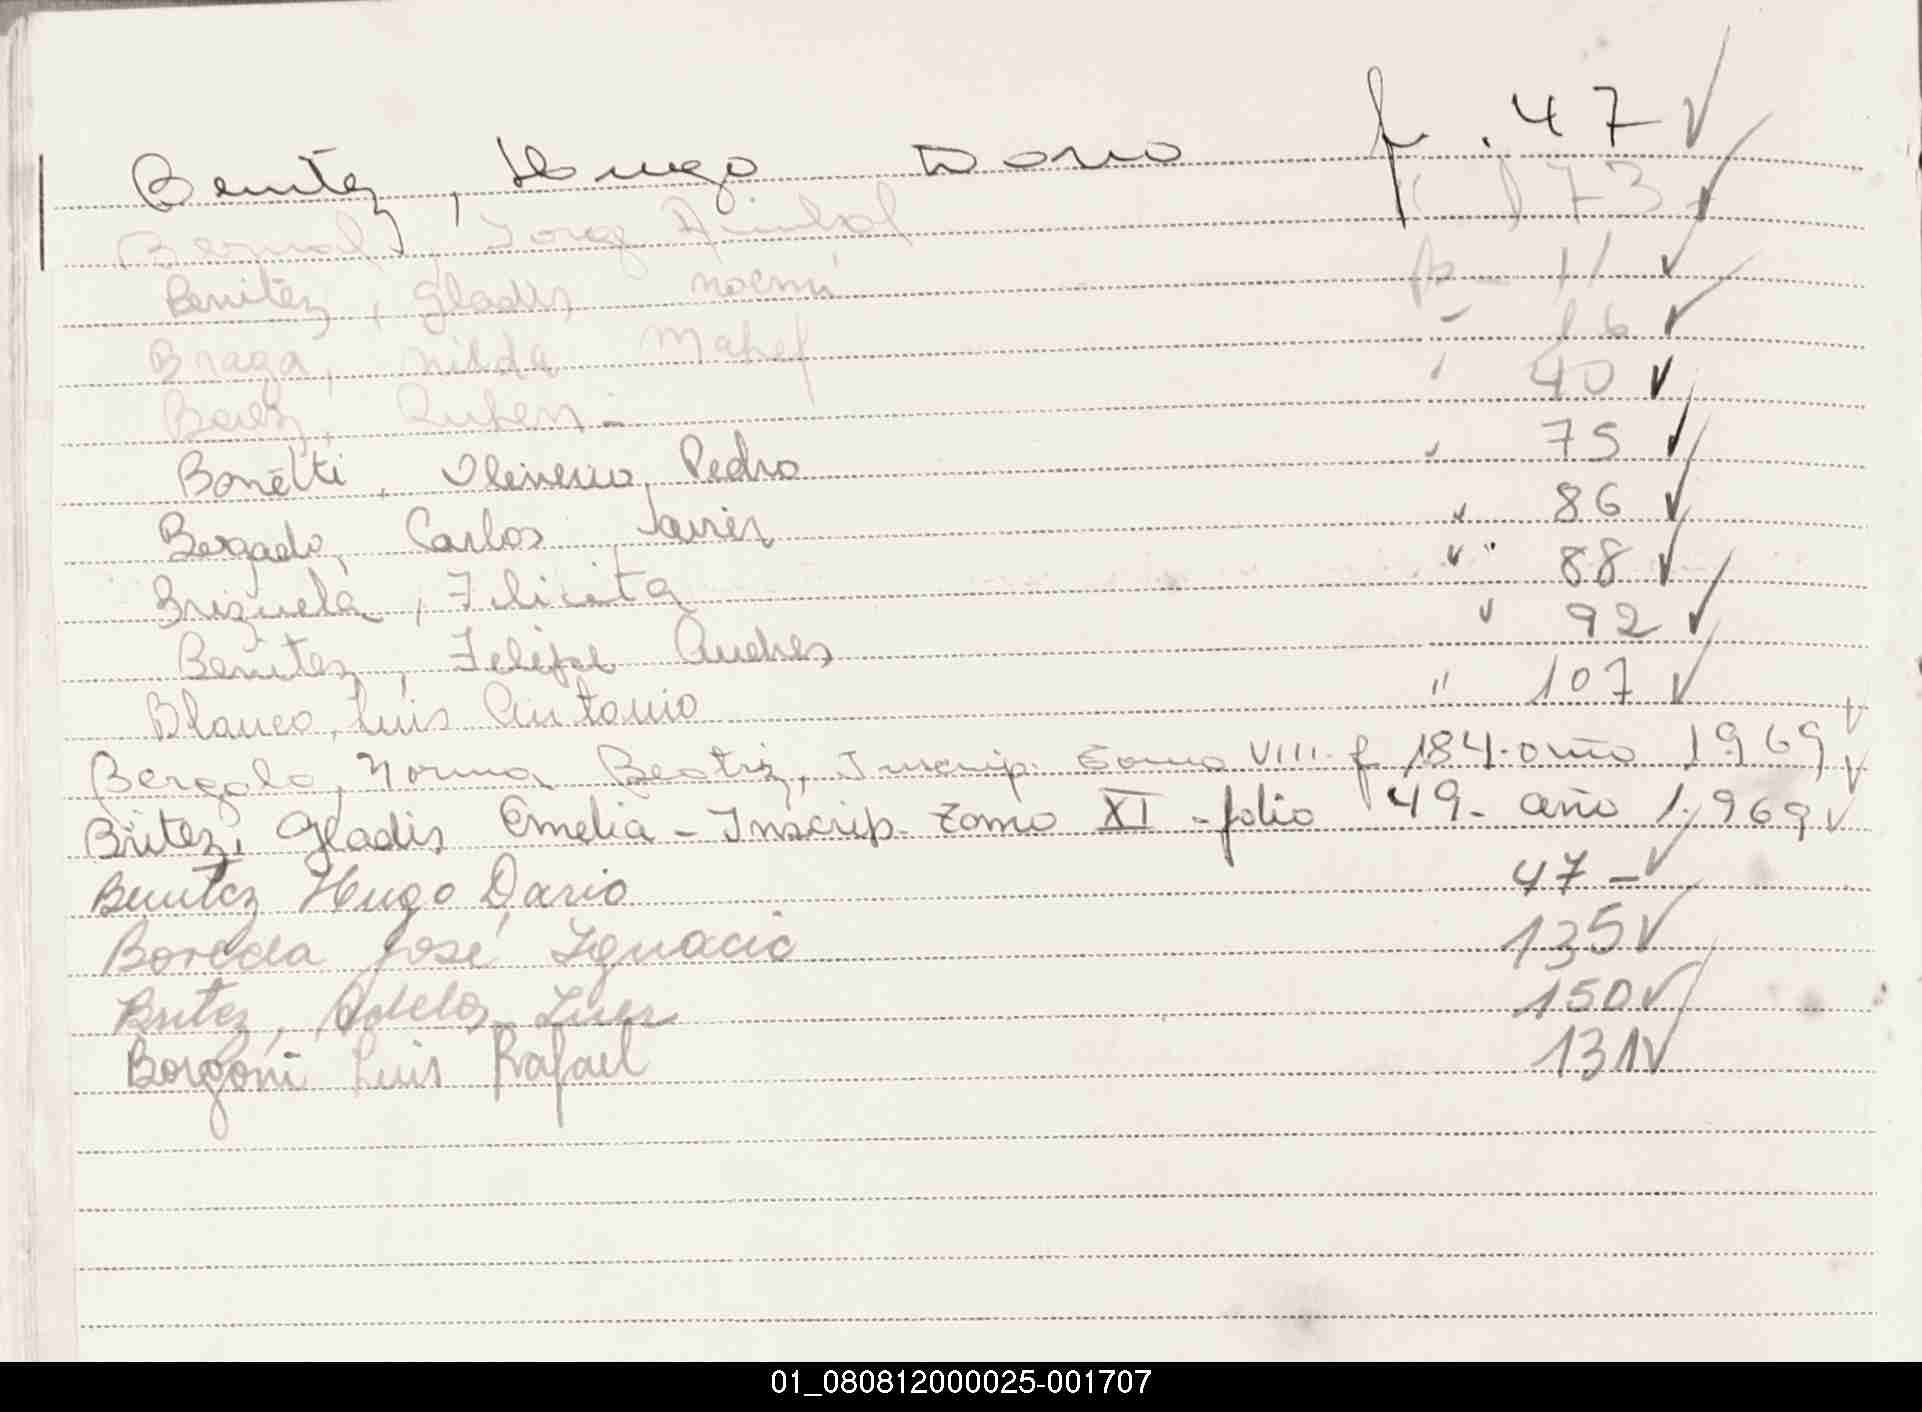 Benitez, Hugo Dario f. 47 ✓
Bernal, Jorge Anibal " 173 ✓
Benitez, Gladis noemi fo - 11 ✓
Braga, nilda Mabel - 16 ✓
Baez, Ruben - " 40 ✓
Bonetti, Oliverio Pedro " 75 ✓
Bergado, Carlos Javier " 86 ✓
Brizuela, Felicita " 88 ✓
Benitez, Felipe Andres " 92 ✓
Blanco, Luis Antonio " 107 ✓
Bergalo, Norma Beatriz, Inscrip. Tomo VIII. f 184. año 1969 ✓
Britez, Gladis Emelia - Inscrip. Tomo XI - folio 49 - año 1.969 ✓
Benitez Hugo Dario 47 - ✓
José Ignacio 135 ✓
Britez, 150 ✓
Borgoni Luis Rafael 131 ✓
01_080812000025-001707